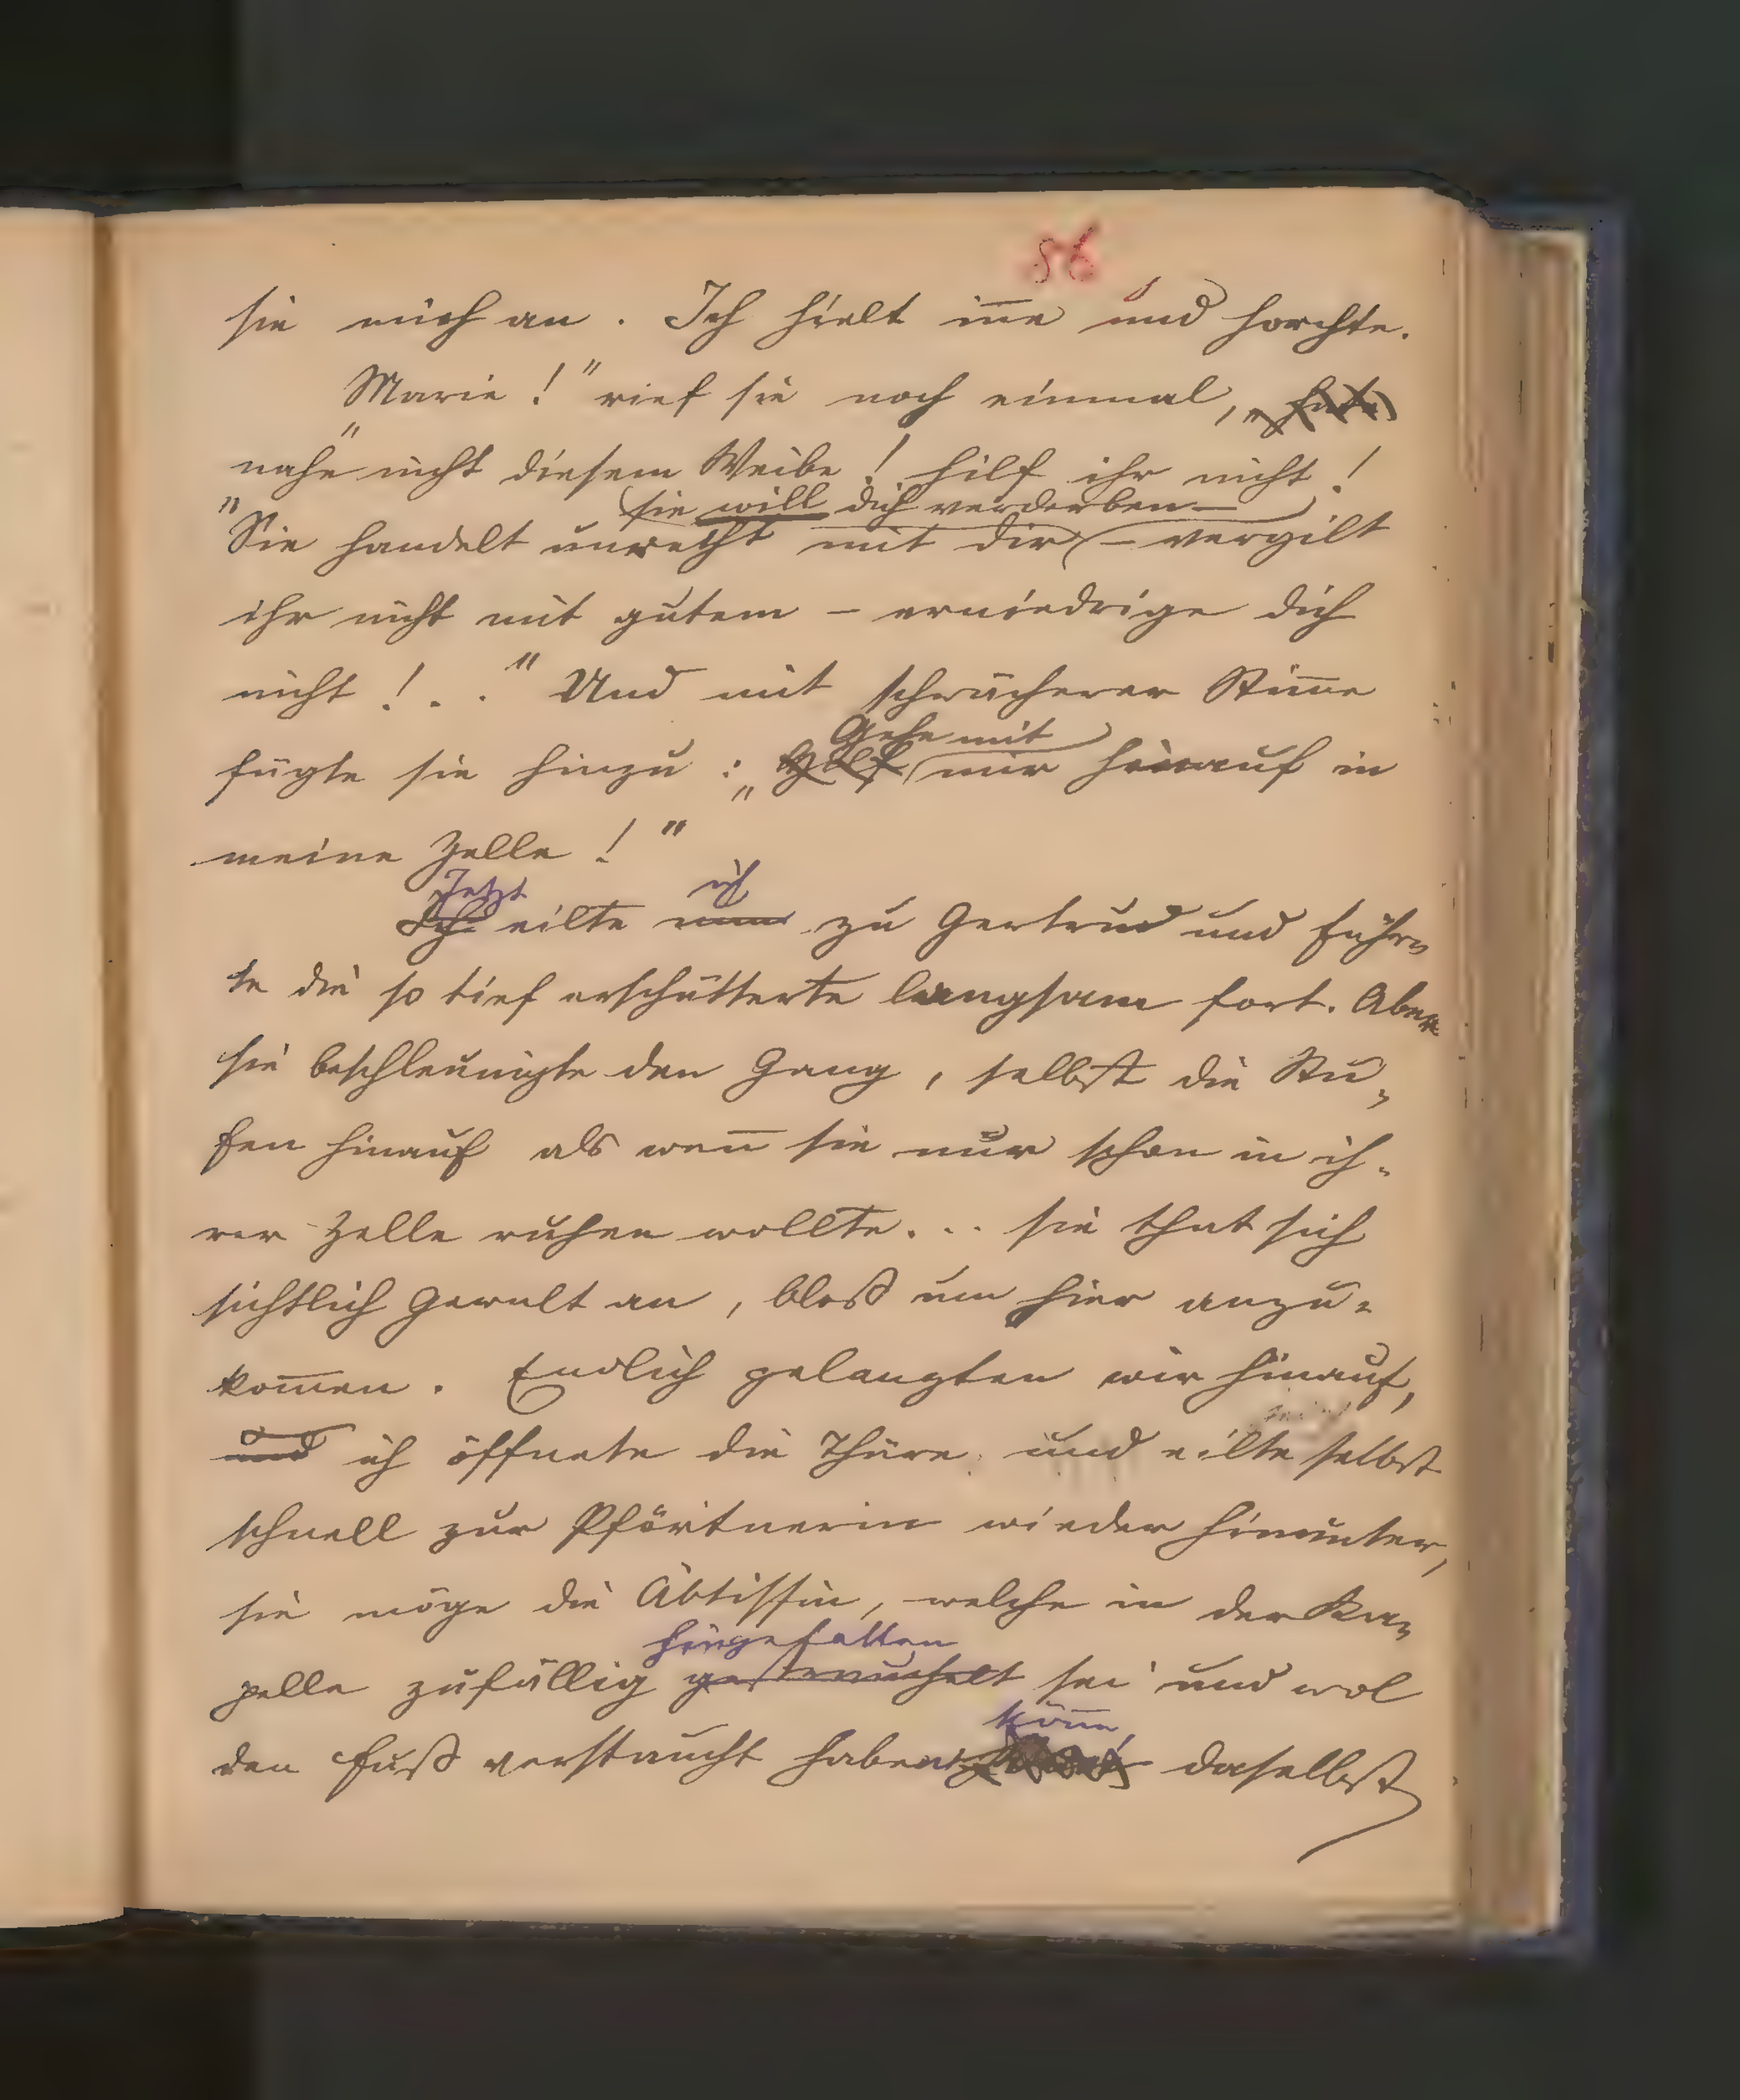 86
sie mich an. Ich hielt iñe und horchte.
„Marie!" rief sie noch einmal, „
nahe nicht diesem Weibe! hilf ihr nicht!
sie will dich verderben –
Sie handelt unrecht mit dir – vergilt
ihr nicht mit gutem – erniedrige dich
nicht! . ." Und mit schwächerer Stim̄e
Gehe mit
fügte sie hinzu: „Hilf mir hinauf in
meine Zelle!"
Jetzt ich
Ich eilte nun zu Gertrud und führ=
te die so tief erschütterte langsam fort. Aber
sie beschleunigte den Gang, selbst die Stu=
fen hinauf als weñ sie nur schon in ih=
rer Zelle ruhen wollte. .. sie that sich
sichtlich Gewalt an, bloß um hier anzu=
kom̄en. Endlich gelangten wir hinauf,
und ich öffnete die Thüre und eilte selbst
schnell zur Pförtnerin wieder hinunter,
sie möge die Äbtissin, welche in der Ka=
hingefallen
pelle zufällig gestrauchelt sei und wol
köñe,
den Fuß verstaucht haben daselbst